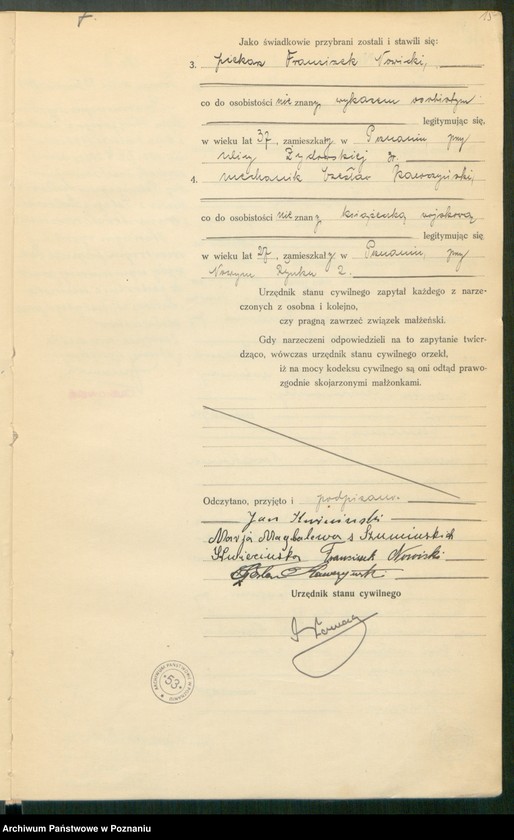 15
Jako świadkowie przybrani zostali i stawili się:
3. piekarz Franciszek Nowicki,
co do osobistości nie znany, wykazem osobistym
legitymując się,
w wieku lat 37, zamieszkały w Poznaniu przy
ulicy Żydowskiej
4. mechanik Czesław
co do osobistości nie znany, książeczką wojskową
legitymując się
w wieku lat 27, zamieszkały w Poznaniu, przy
Nowym Rynku 2.
Urzędnik stanu cywilnego zapytał każdego z narze-
czonych z osobna i kolejno,
czy pragną zawrzeć związek małżeński.
Gdy narzeczeni odpowiedzieli na to zapytanie twier-
dząco, wówczas urzędnik stanu cywilnego orzekł,
iż na mocy kodeksu cywilnego są oni odtąd prawo-
zgodnie skojarzonymi małżonkami.
Odczytano, przyjęto i podpisano.
Jan
Marja Magdalena z
Franciszek Nowicki
Urzędnik stanu cywilnego
ARCHIWUM PAŃSTWOWE W POZNANIU
53
Archiwum Państwowe w Poznaniu